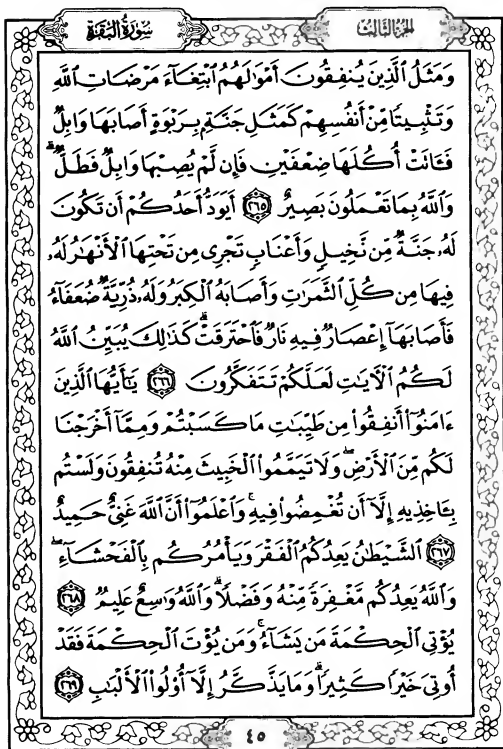 سُورَةُ البَقَرَةِ
الجزء الثالث
وَمَثَلُ ٱلَّذِينَ يُنفِقُونَ أَمْوَٰلَهُمُ ٱبْتِغَآءَ مَرْضَاتِ ٱللَّهِ
وَتَثْبِيتًا مِّنْ أَنفُسِهِمْ كَمَثَلِ جَنَّةٍۭ بِرَبْوَةٍ أَصَابَهَا وَابِلٌ
فَـَٔاتَتْ أُكُلَهَا ضِعْفَيْنِ فَإِن لَّمْ يُصِبْهَا وَابِلٌ فَطَلٌّ ۗ
وَٱللَّهُ بِمَا تَعْمَلُونَ بَصِيرٌ ٢٦٥ أَيَوَدُّ أَحَدُكُمْ أَن تَكُونَ
لَهُۥ جَنَّةٌ مِّن نَّخِيلٍ وَأَعْنَابٍ تَجْرِى مِن تَحْتِهَا ٱلْأَنْهَٰرُ لَهُۥ
فِيهَا مِن كُلِّ ٱلثَّمَرَٰتِ وَأَصَابَهُ ٱلْكِبَرُ وَلَهُۥ ذُرِّيَّةٌ ضُعَفَآءُ
فَأَصَابَهَآ إِعْصَارٌ فِيهِ نَارٌ فَٱحْتَرَقَتْ ۗ كَذَٰلِكَ يُبَيِّنُ ٱللَّهُ
لَكُمُ ٱلْءَايَٰتِ لَعَلَّكُمْ تَتَفَكَّرُونَ ٢٦٦ يَٰٓأَيُّهَا ٱلَّذِينَ
ءَامَنُوٓا۟ أَنفِقُوا۟ مِن طَيِّبَٰتِ مَا كَسَبْتُمْ وَمِمَّآ أَخْرَجْنَا
لَكُم مِّنَ ٱلْأَرْضِ ۖ وَلَا تَيَمَّمُوا۟ ٱلْخَبِيثَ مِنْهُ تُنفِقُونَ وَلَسْتُم
بِـَٔاخِذِيهِ إِلَّآ أَن تُغْمِضُوا۟ فِيهِ ۚ وَٱعْلَمُوٓا۟ أَنَّ ٱللَّهَ غَنِىٌّ حَمِيدٌ
٢٦٧ ٱلشَّيْطَٰنُ يَعِدُكُمُ ٱلْفَقْرَ وَيَأْمُرُكُم بِٱلْفَحْشَآءِ ۖ
وَٱللَّهُ يَعِدُكُم مَّغْفِرَةً مِّنْهُ وَفَضْلًا ۗ وَٱللَّهُ وَٰسِعٌ عَلِيمٌ ٢٦٨
يُؤْتِى ٱلْحِكْمَةَ مَن يَشَآءُ ۚ وَمَن يُؤْتَ ٱلْحِكْمَةَ فَقَدْ
أُوتِىَ خَيْرًا كَثِيرًا ۗ وَمَا يَذَّكَّرُ إِلَّآ أُو۟لُوا۟ ٱلْأَلْبَٰبِ ٢٦٩
٤٥